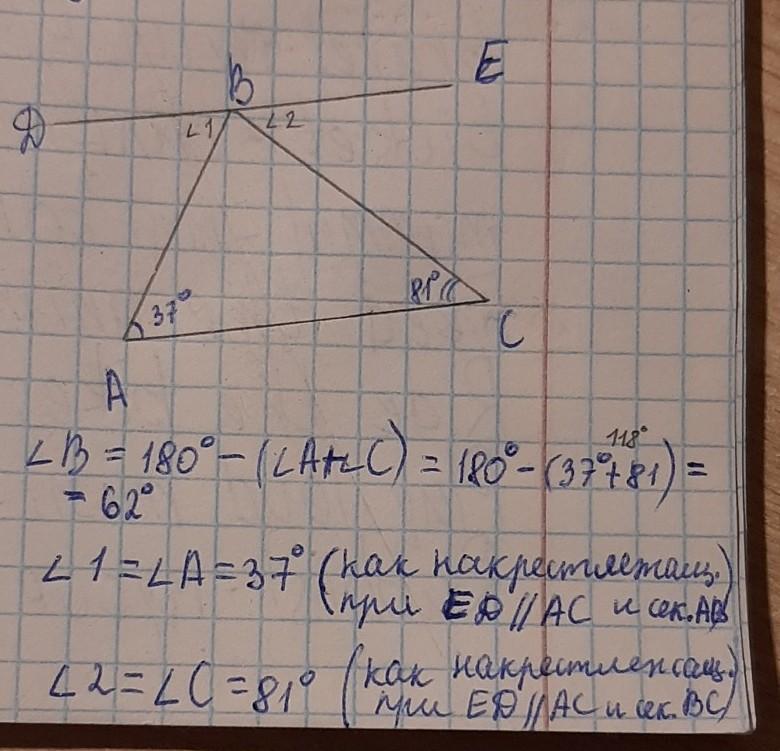 B
E
D
∠1
∠2
37°
81°
C
A
118°
∠B = 180° - (∠A+∠C) = 180° - (37°+81) =
= 62°
∠1 = ∠A = 37° (как накрестлежащ.
при ED // AC и сек. AB)
∠2 = ∠C = 81° (как накрестлежащ.
при ED // AC и сек. BC)